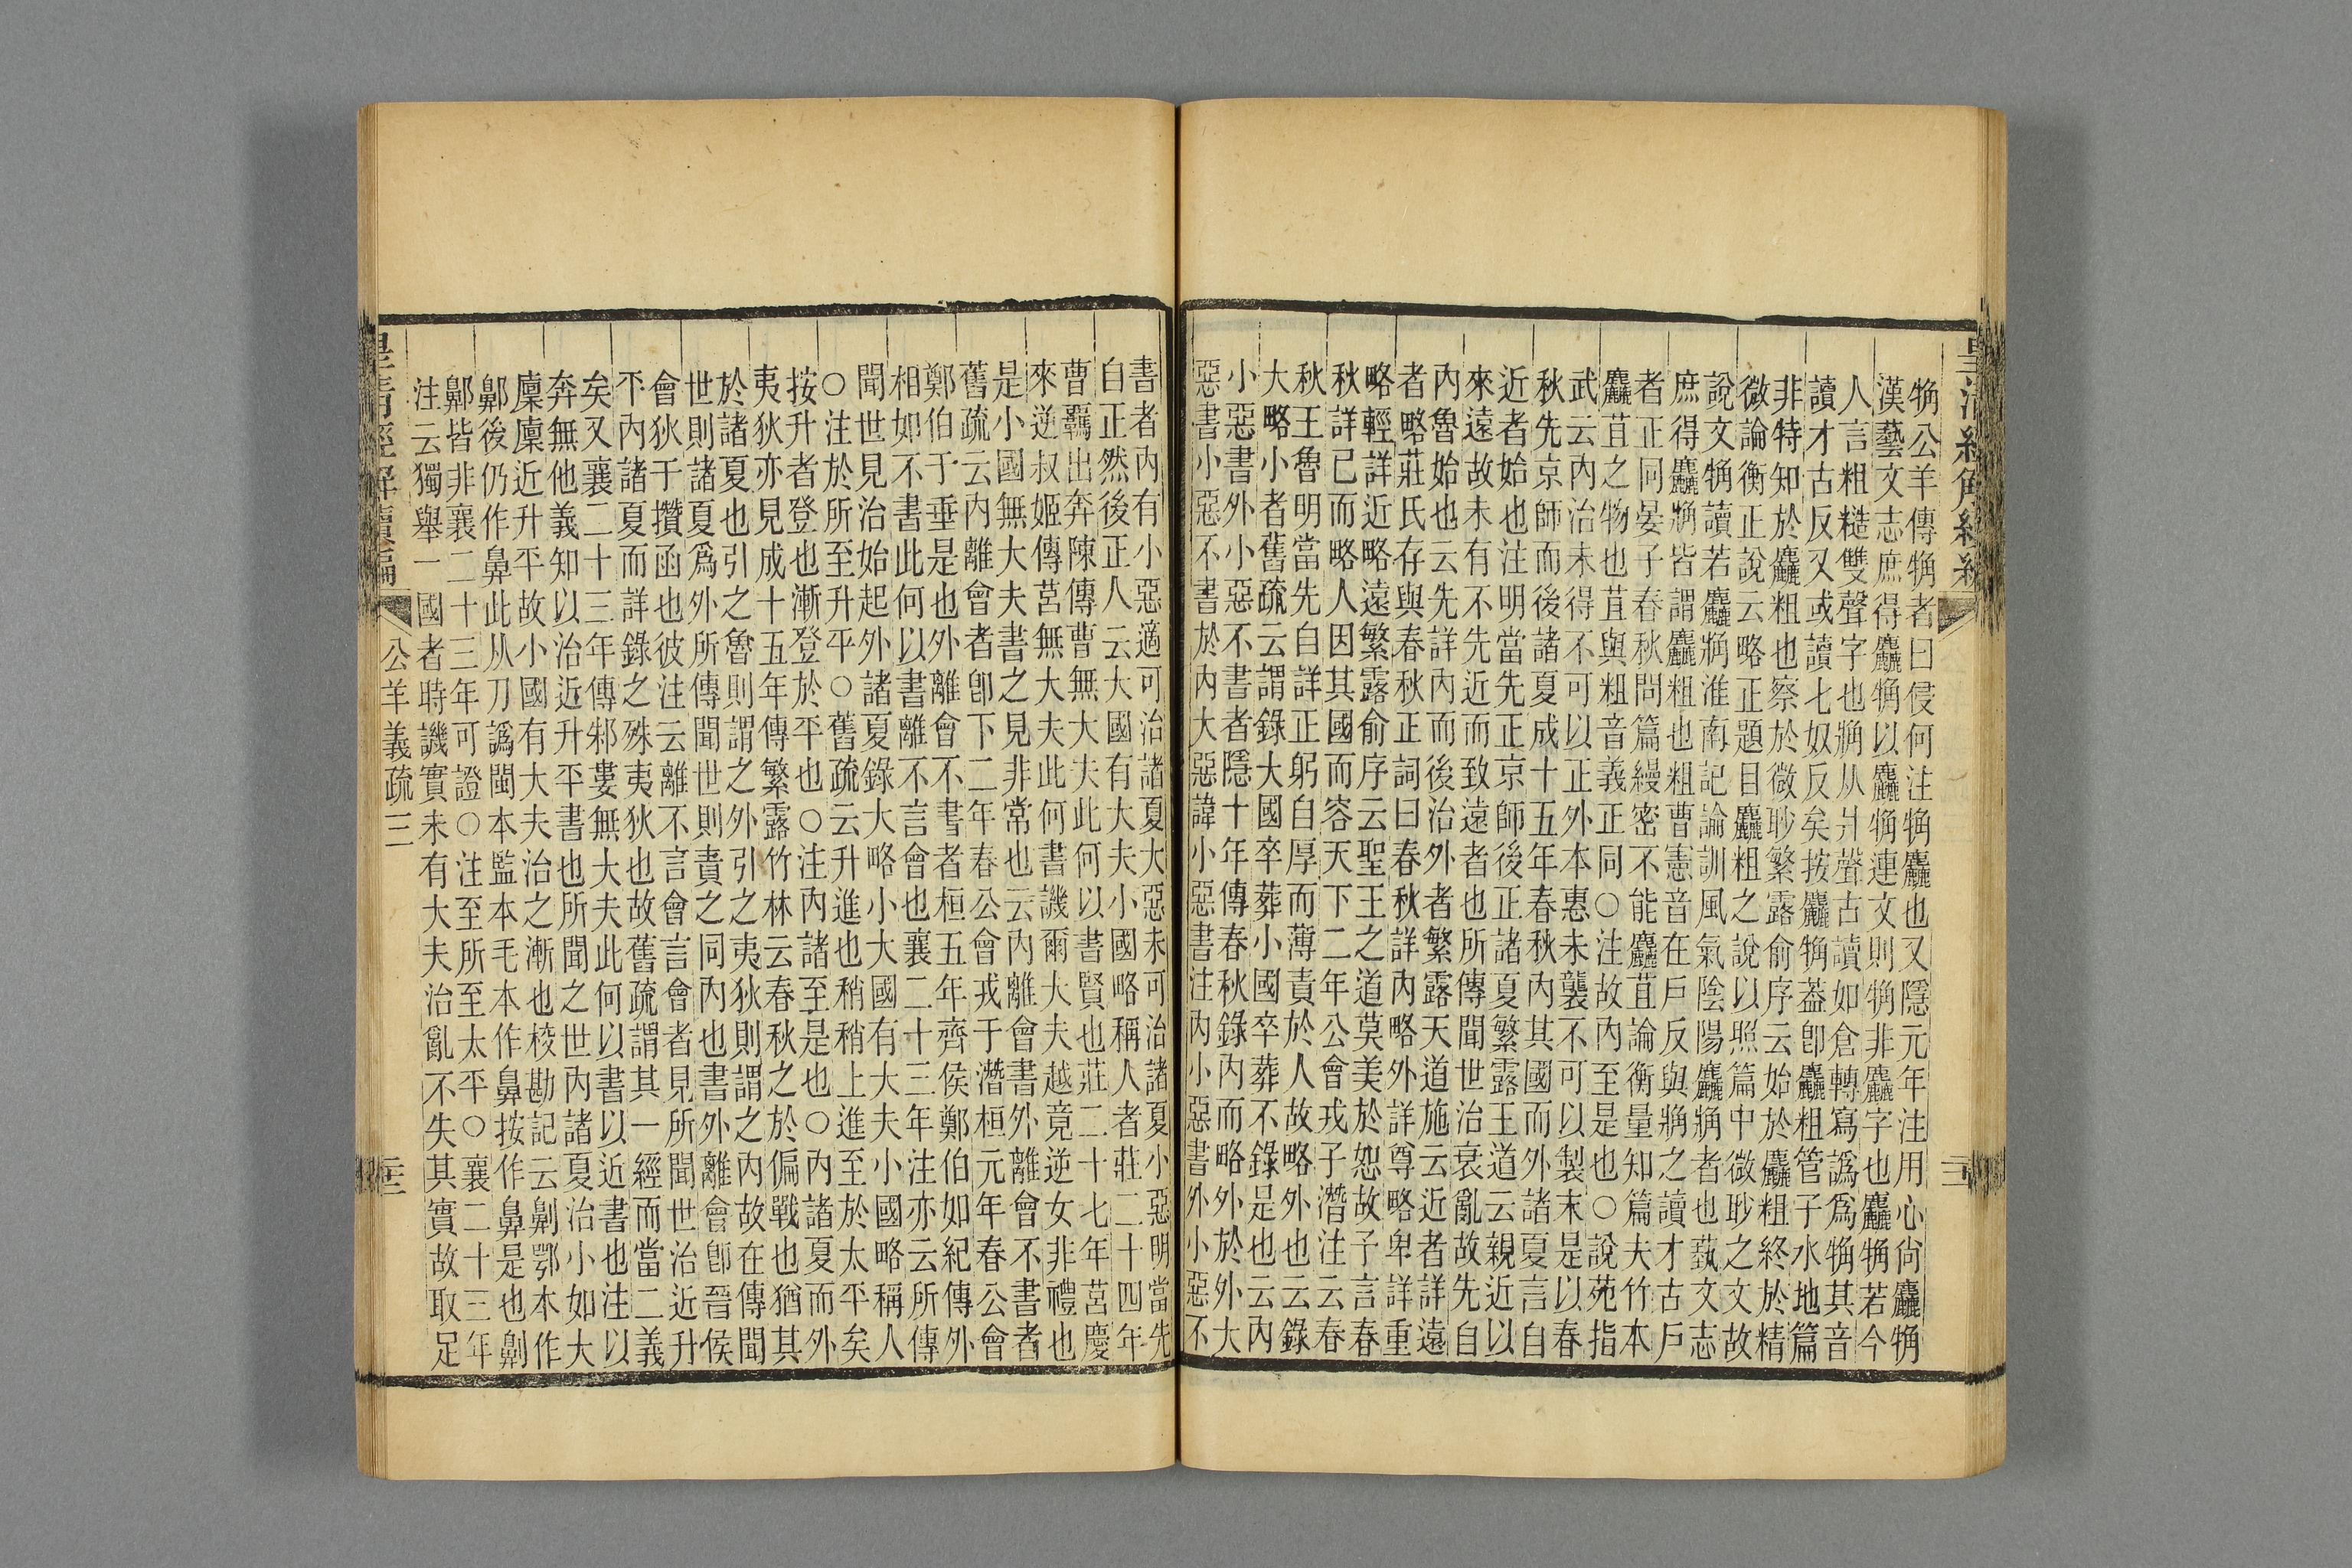 觕公羊傳觕者曰侵何注觕麤也又隱元年注用心尙麤觕
漢藝文志庶得麤觕以麤觕連文則觕非麤字也麤觕若今
人言粗糙雙聲字也觕从爿聲古讀如倉轉寫譌爲觕其音
讀才古反又或讀七奴反矣按麤觕葢卽麤粗管子水地篇
非特知於麤粗也察於微眇繁露俞序云始於麤粗終於精
微論衡正說云略正題目麤粗之說以照篇中微眇之文故
說文觕讀若麤觕淮南記論訓風氣陰陽麤觕者也蓺文志
庶得麤觕皆謂麤粗也粗曹憲音在戶反與觕之讀才古戶
者正同晏子春秋問篇縵密不能麤苴論衡量知篇夫竹本
麤苴之物也苴與粗音義正同○注故內至是也○說苑指
武云內治未得不可以正外本惠未襲不可以製末是以春
秋先京師而後諸夏成十五年春秋內其國而外諸夏言自
近者始也注明當先正京師後正諸夏繁露王道云親近以
來遠故未有不先近而致遠者也所傳聞世治衰亂故先自
內魯始也云先詳內而後治外者繁露天道施云近者詳遠
者略莊氏存與春秋正詞曰春秋詳內略外詳尊略卑詳重
略輕詳近略遠繁露俞序云聖王之道莫美於恕故子言春
秋詳已而略人因其國而容天下二年公會戎子潛注云春
秋王魯明當先自詳正躬自厚而薄責於人故略外也云錄
大略小者舊疏云謂錄大國卒葬小國卒葬不錄是也云內
小惡書外小惡不書者隱十年傳春秋錄內而略外於外大
惡書小惡不書於內大惡諱小惡書注內小惡書外小惡不
書者內有小惡適可治諸夏大惡未可治諸夏小惡明當先
自正然後正人云大國有大夫小國略稱人者莊二十四年
曹羈出奔陳傳曹無大夫此何以書賢也莊二十七年莒慶
來逆叔姬傳莒無大夫此何書譏爾大夫越竟逆女非禮也
是小國無大夫書之見非常也云內離會書外離會不書者
舊疏云內離會者卽下二年春公會戎于潛桓元年春公會
鄭伯于垂是也外離會不書者桓五年齊侯鄭伯如紀傳外
相如不書此何以書離不言會也襄二十三年注亦云所傳
聞世見治始起外諸夏錄大略小大國有大夫小國略稱人
○注於所至升平○舊疏云升進也稍稍上進至於太平矣
按升者登也漸登於平也○注內諸至是也○內諸夏而外
夷狄亦見成十五年傳繁露竹林云春秋之於偏戰也猶其
於諸夏也引之魯則謂之外引之夷狄則謂之內故在傳聞
世則諸夏爲外所傳聞世則責之同內也書外離會卽晉侯
會狄于攢函也彼注云離不言會言會者見所聞世治近升
平內諸夏而詳錄之殊夷狄也故舊疏謂其一經而當二義
矣又襄二十三年傳邾婁無大夫此何以書以近書也注以
奔無他義知以治近升平書也所聞之世內諸夏治小如大
廩廩近升平故小國有大夫治之漸也校勘記云劓鄂本作
鄸後仍作鼻此从刀譌閩本監本毛本作鼻按作鼻是也劓
鄸皆非襄二十三年可證○注至所至太平○襄二十三年
注云獨舉一國者時譏實未有大夫治亂不失其實故取足
公羊義疏三